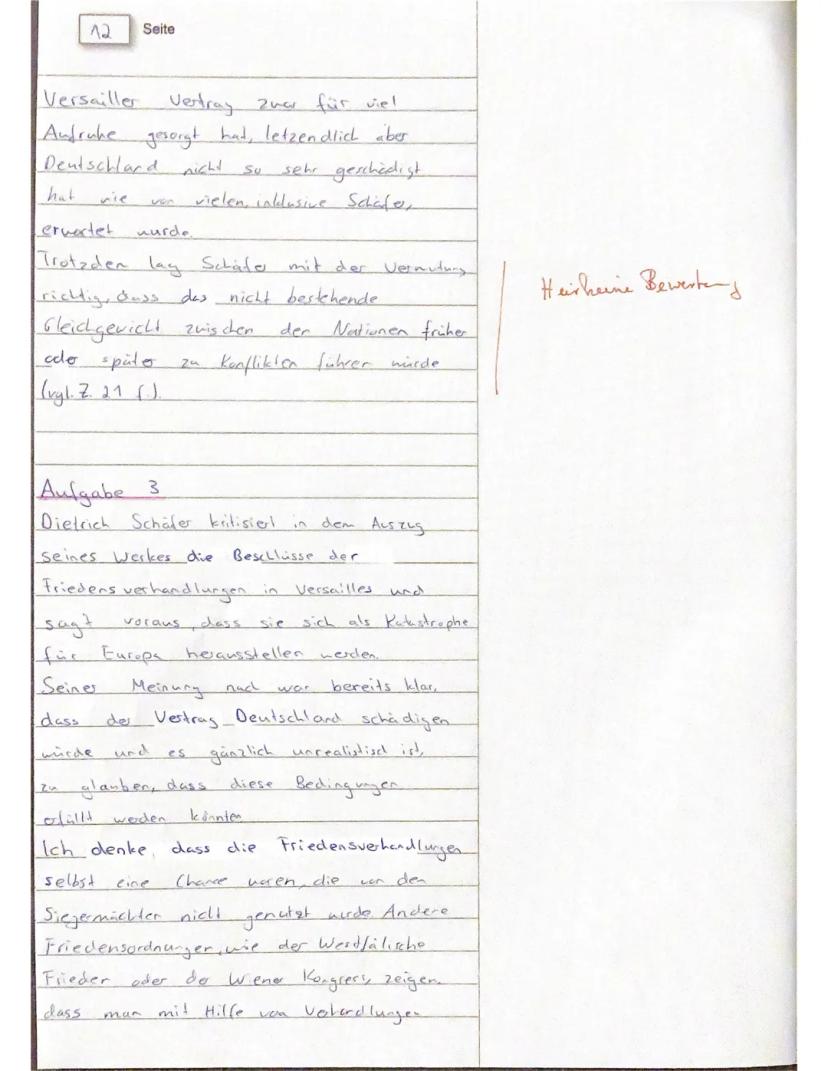 12 Seite
Versailler Vertrag zwar für viel
Aufruhe gesorgt hat, letzendlich aber
Deutschland nicht so sehr geschädigt
hat wie von vielen, inklusive Schäfer,
erwartet wurde.
Trotzdem lag Schäfer mit der Vermutung
richtig, dass das nicht bestehende
Gleichgewicht zwischen den Nationen früher
oder später zu Konflikten führen würde
(vgl. Z. 21 f.).
Hier keine Bewertung
Aufgabe 3
Dietrich Schäfer kritisiert in dem Auszug
seines Werkes die Beschlüsse der
Friedensverhandlungen in Versailles und
sagt voraus, dass sie sich als Katastrophe
für Europa herausstellen werden.
Seiner Meinung nach war bereits klar,
dass der Vertrag Deutschland schädigen
würde und es gänzlich unrealistisch ist,
zu glauben, dass diese Bedingungen
erfüllt werden könnten.
Ich denke, dass die Friedensverhandlungen
selbst eine Chance waren, die von den
Siegermächten nicht genutzt wurde. Andere
Friedensordnungen, wie der Westfälische
Frieden oder der Wiener Kongress, zeigen,
dass man mit Hilfe von Verhandlungen